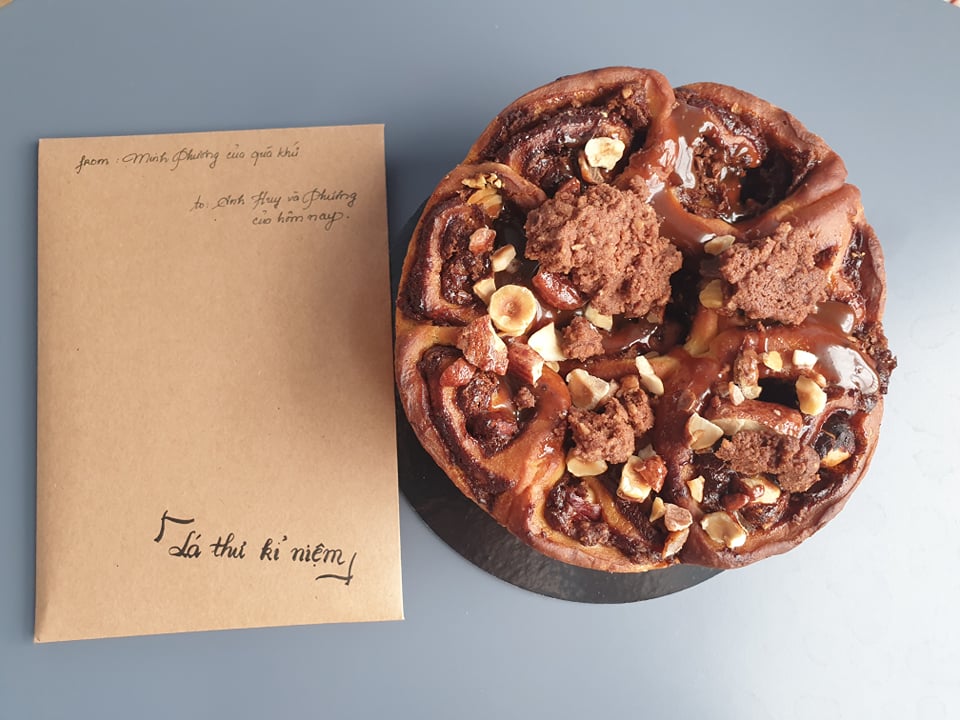 from : Minh Phương của quá khứ
to: Anh Huy và Phương
của hôm nay.
「Lá thư kỉ niệm」